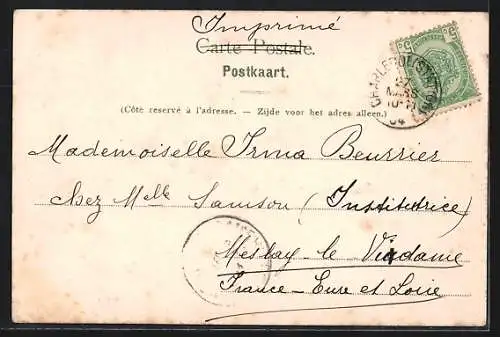 Imprimé
Carte Postale.
Postkaart.
(Côté reservé à l'adresse. - Zijde voor het adres alleen.)
Mademoiselle Irma Beurrier
chez Melle Samson (Institutrice)
Meslay-le Vidame
France-Eure et Loire
MARS
04